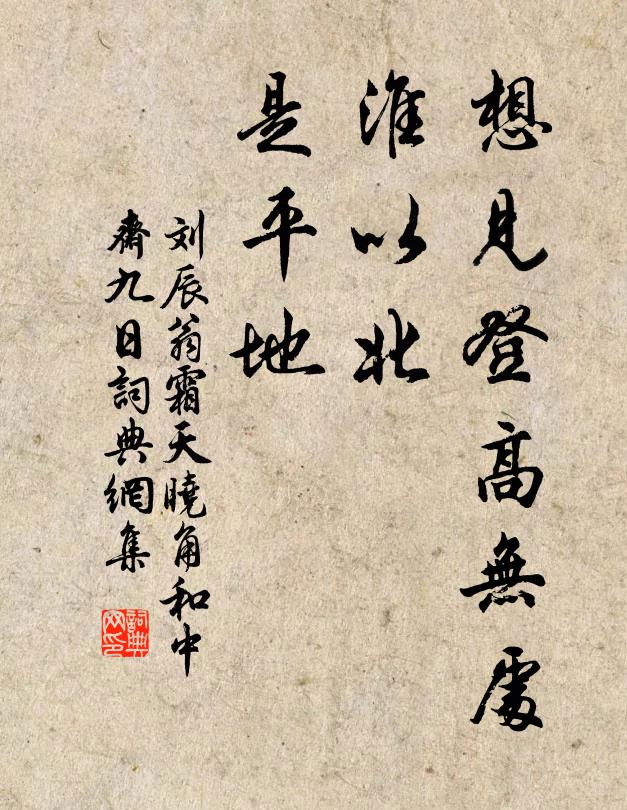 想見登高無處
淮以北
是平地
刘辰翁霜天曉角和中
齋九日詞典網集
詞典网印